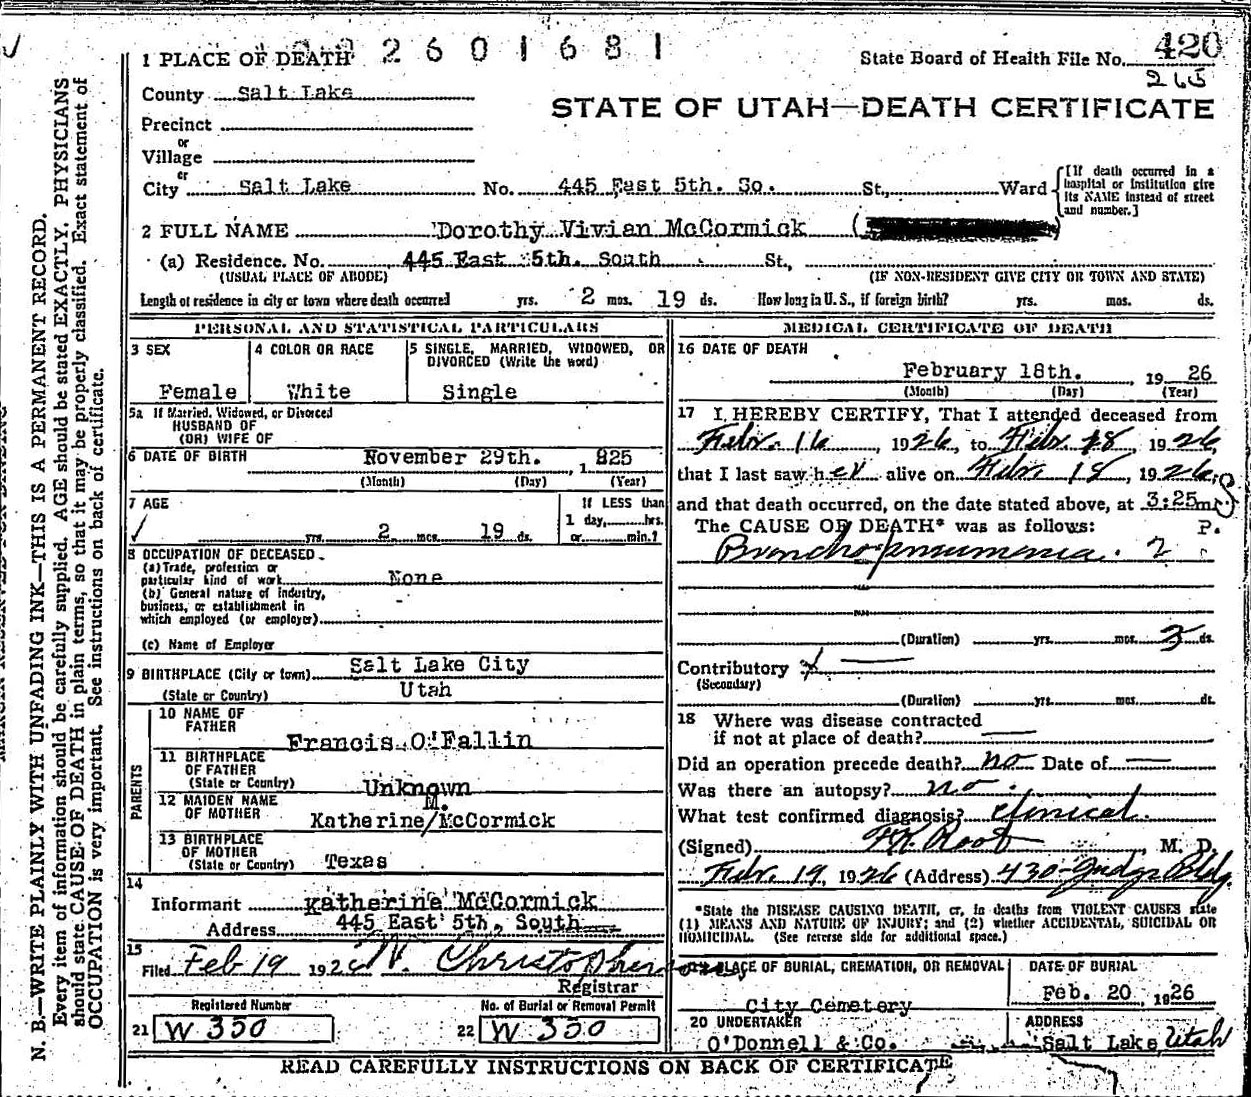 2601681
1 PLACE OF DEATH
State Board of Health File No. 420
265
County Salt Lake
STATE OF UTAH—DEATH CERTIFICATE
Precinct
or
Village
or
City Salt Lake No. 445 East 5th. So. St., Ward
[If death occurred in a hospital or institution give its NAME instead of street and number.]
2 FULL NAME Dorothy Vivian McCormick (
(a) Residence. No. 445 East 5th. South St.,
(USUAL PLACE OF ABODE) (IF NON-RESIDENT GIVE CITY OR TOWN AND STATE)
Length of residence in city or town where death occurred yrs. 2 mos. 19 ds. How long in U. S., if foreign birth? yrs. mos. ds.
PERSONAL AND STATISTICAL PARTICULARS
3 SEX
Female
4 COLOR OR RACE
White
5 SINGLE, MARRIED, WIDOWED, OR
DIVORCED (Write the word)
Single
5a If Married, Widowed, or Divorced
HUSBAND OF
(OR) WIFE OF
6 DATE OF BIRTH November 29th. , 1 825
(Month) (Day) (Year)
7 AGE
yrs. 2 mos. 19 ds.
If LESS than
1 day,......hrs.
or......min.?
8 OCCUPATION OF DECEASED
(a) Trade, profession or
particular kind of work None
(b) General nature of industry,
business, or establishment in
which employed (or employer)
(c) Name of Employer
9 BIRTHPLACE (City or town) Salt Lake City
(State or Country) Utah
PARENTS
10 NAME OF
FATHER
Francis O'Fallin
11 BIRTHPLACE
OF FATHER
(State or Country) Unknown
12 MAIDEN NAME
OF MOTHER
M.
Katherine/McCormick
13 BIRTHPLACE
OF MOTHER
(State or Country) Texas
14
Informant Katherine McCormick
Address 445 East 5th, South
15
Filed Feb 19 1926 W. Christopherson
Registrar
Registered Number
21 W 350
No. of Burial or Removal Permit
22 W 350
MEDICAL CERTIFICATE OF DEATH
16 DATE OF DEATH
February 18th. , 19 26
(Month) (Day) (Year)
17 I HEREBY CERTIFY, That I attended deceased from
Febr. 16, 1926, to Febr. 18 1926,
that I last saw her alive on Febr 18, 1926,
and that death occurred, on the date stated above, at 3:25 m
The CAUSE OF DEATH* was as follows: P.
Broncho pneumonia. 2
(Duration) yrs. mos. 3 ds.
Contributory
(Secondary)
(Duration) yrs. mos. ds.
18 Where was disease contracted
if not at place of death?
Did an operation precede death? no Date of —
Was there an autopsy? no.
What test confirmed diagnosis? clinical.
(Signed) F.K. Root, M. D.
Febr. 19, 1926 (Address) 430 Judge Bldg.
*State the DISEASE CAUSING DEATH, or, in deaths from VIOLENT CAUSES state
(1) MEANS AND NATURE OF INJURY; and (2) whether ACCIDENTAL, SUICIDAL OR
HOMICIDAL. (See reverse side for additional space.)
PLACE OF BURIAL, CREMATION, OR REMOVAL
City Cemetery
DATE OF BURIAL
Feb. 20, 1926
20 UNDERTAKER
O'Donnell & Co.
ADDRESS
Salt Lake, Utah
READ CAREFULLY INSTRUCTIONS ON BACK OF CERTIFICATE
N. B.—WRITE PLAINLY WITH UNFADING INK—THIS IS A PERMANENT RECORD.
Every item of information should be carefully supplied. AGE should be stated EXACTLY. PHYSICIANS
should state CAUSE OF DEATH in plain terms, so that it may be properly classified. Exact statement of
OCCUPATION is very important. See instructions on back of certificate.